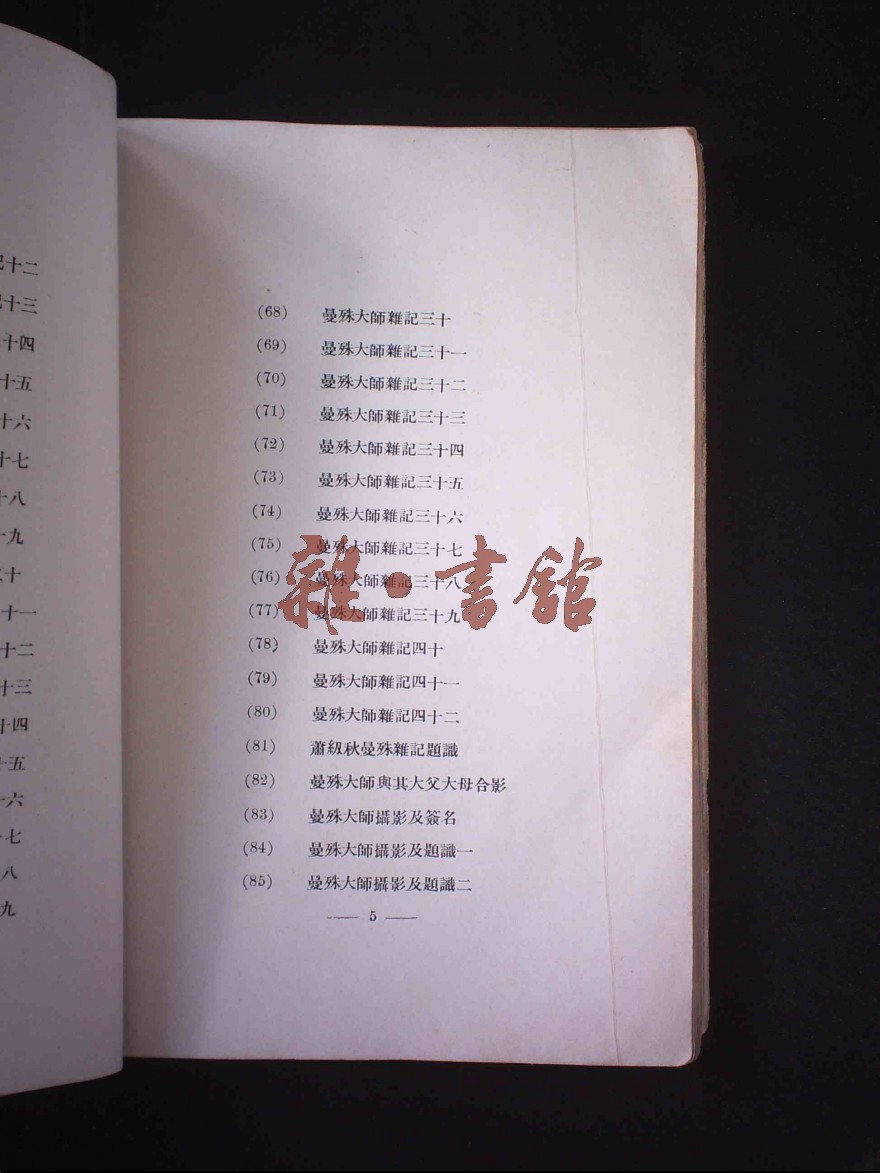 記十二
記十三
十四
十五
十六
十七
十八
十九
二十
十一
十二
十三
十四
十五
十六
十七
八
九
(68) 曼殊大師雜記三十
(69) 曼殊大師雜記三十一
(70) 曼殊大師雜記三十二
(71) 曼殊大師雜記三十三
(72) 曼殊大師雜記三十四
(73) 曼殊大師雜記三十五
(74) 曼殊大師雜記三十六
(75) 曼殊大師雜記三十七
(76) 曼殊大師雜記三十八
(77) 曼殊大師雜記三十九
(78) 曼殊大師雜記四十
(79) 曼殊大師雜記四十一
(80) 曼殊大師雜記四十二
(81) 蕭紉秋曼殊雜記題識
(82) 曼殊大師與其大父大母合影
(83) 曼殊大師攝影及簽名
(84) 曼殊大師攝影及題識一
(85) 曼殊大師攝影及題識二
—— 5 ——
雜·書館